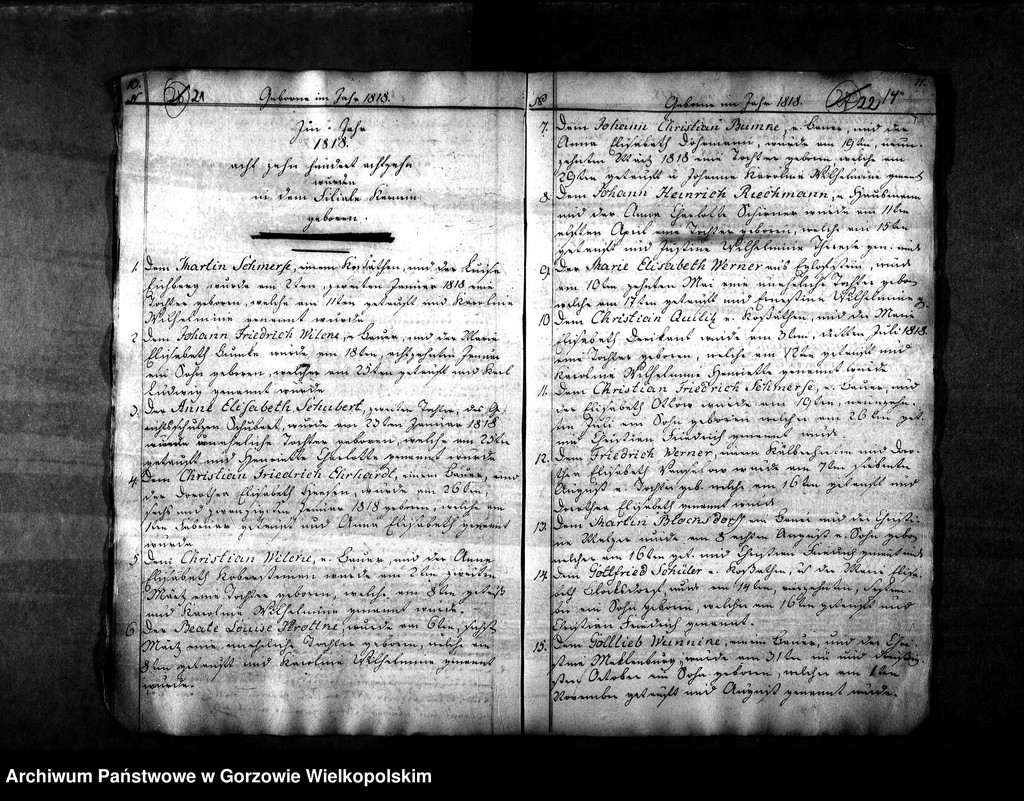 10.
N
21
Geborne im Jahr 1818.
Im Jahr
1818.
acht zehn hundert achtzehn
wurden
in dem Filiale
geboren.
1. Dem Martin Schmerse, einem Kossäthen, und der Luise
Eichberg, wurde am 2ten, zweiten Januar 1818 eine
Tochter geboren, welche am 11ten getauft und Karoline
Wilhelmine genannt wurde.
2. Dem Johann Friedrich Wilcke, e. Bauer, und der Marie
Elisabeth wurde am 18ten, achtzehnten Januar
ein Sohn geboren, welcher am 25ten getauft und Karl
Ludwig genannt wurde
3. Der Anne Elisabeth Schubert, zweiten Tochter, des Ge-
richtsschulzen Schubert, wurde am 23ten Januar 1818
uneheliche Tochter geboren, welche am 25ten
getauft und Henriette Charlotte genannt wurde
4. Dem Christian Friedrich Ehrhardt, einem Bauer, und
der Dorothea Elisabeth wurde am 26ten,
sechs und zwanzigsten Januar 1818 geboren, welche am
1ten Februar getauft und Anna Elisabeth genannt
wurde
5. Dem Christian e. Bauer, und der Anne
Elisabeth wurde am 2ten zweiten
März eine Tochter geboren, welche am 8ten getauft
und Karoline Wilhelmine genannt wurde.
6. Der Beate Louise wurde am 6ten, sechst
März eine uneheliche Tochter geboren, welche am
8ten getauft und Karoline Wilhelmine genannt
wurde.
11.
No
Geborne im Jahr 1818.
22
14
7. Dem Johann Christian e. Bauer, und der
Anna Elisabeth wurde am 19ten, neun-
zehnten März 1818 eine Tochter geboren, welche am
29ten getauft u Johanne Karoline Wilhelmine genannt
8. Dem Johann Heinrich Rieckmann, e. Hausmann
und der Anne Charlotte Schirmer wurde am 11ten
elften April eine Tochter geboren, welche am 15ten
getauft und Justine Wilhelmine gen. wurde
9. Der Marie Elisabeth Werner aus wurde
am 10ten zehnten Mai eine uneheliche Tochter geboren
welche am 17ten getauft und Ernestine Wilhelmine g.
10 Dem Christian e. Kossäthen, und der Marie
Elisabeth wurde am 3ten, dritten Juli 1818.
eine Tochter geboren, welche am 12ten getauft und
Karoline Wilhelmine Henriette genannt wurde
11. Dem Christian Friedrich Schmerse, e. Bauer, und
der Elisabeth Ollow wurde am 19ten, neunzehn-
ten Juli ein Sohn geboren welcher am 26ten get.
und Christian Friedrich genannt wurde
12. Dem Friedrich Werner, einem und Doro-
thea Elisabeth wurde am 7ten siebenten
August e. Tochter geb. welche am 16ten getauft und
Dorothee Elisabeth genannt wurde
13. Dem Martin Blocksdorff ein Bauer und der Christi-
ne Metzger wurde am 8 achten August e. Sohn gebor
welcher am 16ten get. und Christian Friedrich genannt wurde
14. Dem Gottfried Schüler e. Kossäthen, u der Marie Elisa-
beth Blocksdorff, wurde am 14ten, vierzehnten, Septem-
ber ein Sohn geboren, welcher am 16ten getauft und
Christian Friedrich genannt.
15. Dem Gottlieb einem Bauer, und der
Mecklenburg, wurde am 31ten ein und dreißig-
sten October ein Sohn geboren, welcher am 1ten
November getauft und August genannt wurde.
Archiwum Państwowe w Gorzowie Wielkopolskim